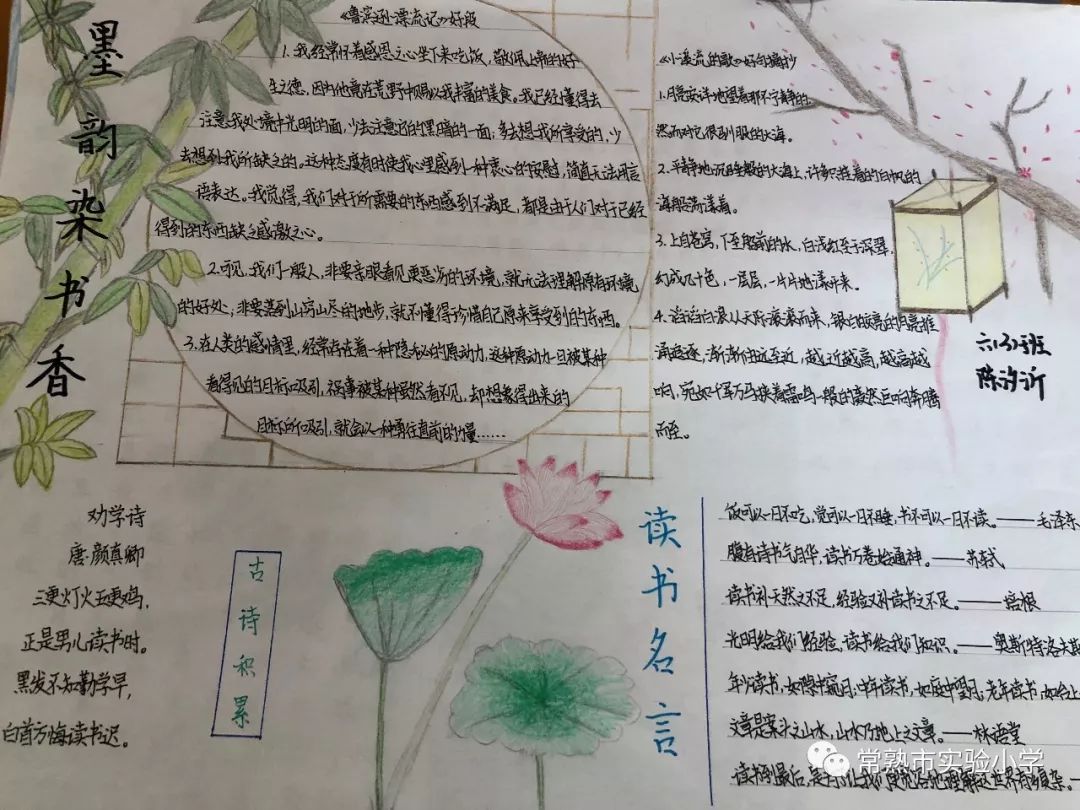 墨韵染书香
《鲁宾逊漂流记》好段
1.我经常怀着感恩之心坐下来吃饭，敬佩上帝的好
生之德，因为他竟在荒野中赐以我丰富的美食。我已经懂得去
注意我处境中光明的面，少去注意它的黑暗的一面；多去想我所享受的，少
去想到我所缺乏的。这种态度有时使我心里感到一种衷心的安慰，简直无法用言
语表达。我觉得，我们对于所需要的东西感到不满足，都是由于人们对于已经
得到的东西缺乏感激之心。
2.可见，我们一般人，非要亲眼看见更恶劣的环境，就无法理解原有环境
的好处；非要落到山穷山尽的地步，就不懂得珍惜自己原来享受到的东西。
3.在人类的感情里，经常存在着一种隐秘的原动力，这种原动力一旦被某种
看得见的目标吸引，或事被某种虽然看不见，却想象得出来的
目标所吸引，就会以一种勇往直前的力量……
《小溪流的歌》好句摘抄
1.月亮安详地望着那不宁静的，
然而对它很驯服的大海。
2.平静地沉睡般的大海上，许多只挂着的白帆的
海船荡漾着。
3.上自苍穹，下至船前的水，自浅红至于深翠，
幻成几十色，一层层，一片片地漾开来。
4.滔滔白浪从天际滚滚而来，银白皎亮的月亮推
涌追逐，渐渐由远至近，越近越高，越高越
响，宛如千军万马挟着雷鸣一般的轰然巨响奔腾
而至。
六（3）班
陈汐沂
劝学诗
唐·颜真卿
三更灯火五更鸡，
正是男儿读书时。
黑发不知勤学早，
白首方悔读书迟。
古诗积累
读书名言
饭可以一日不吃，觉可以一日不睡，书不可以一日不读。——毛泽东
腹有诗书气自华，读书万卷始通神。——苏轼
读书补天然之不足，经验又补读书之不足。——培根
光明给我们经验，读书给我们知识。——奥斯特洛夫斯
年少读书，如隙中窥月；中年读书，如庭中望月；老年读书，如台上
文章是案头之山水，山水乃地上之文章。——林语堂
读书到最后，是为了让我们更宽容地理解这世界有多复杂。—
常熟市实验小学